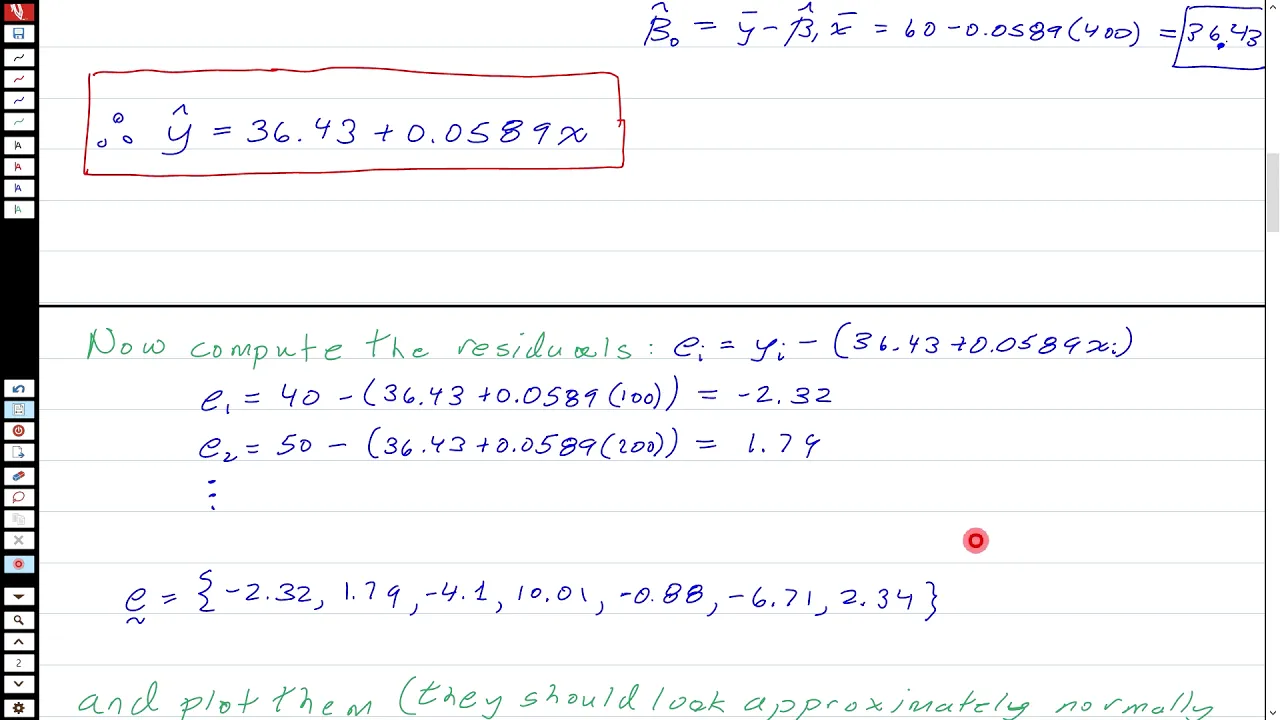 β̂₀ = ȳ − β̂₁ x̄ = 60 − 0.0589(400) = 36.43
∴ ŷ = 36.43 + 0.0589x
Now compute the residuals: eᵢ = yᵢ − (36.43 + 0.0589xᵢ)
e₁ = 40 − (36.43 + 0.0589(100)) = −2.32
e₂ = 50 − (36.43 + 0.0589(200)) = 1.79
⋮
e = {−2.32, 1.79, −4.1, 10.01, −0.88, −6.71, 2.34}
~
and plot them (they should look approximately normally
2